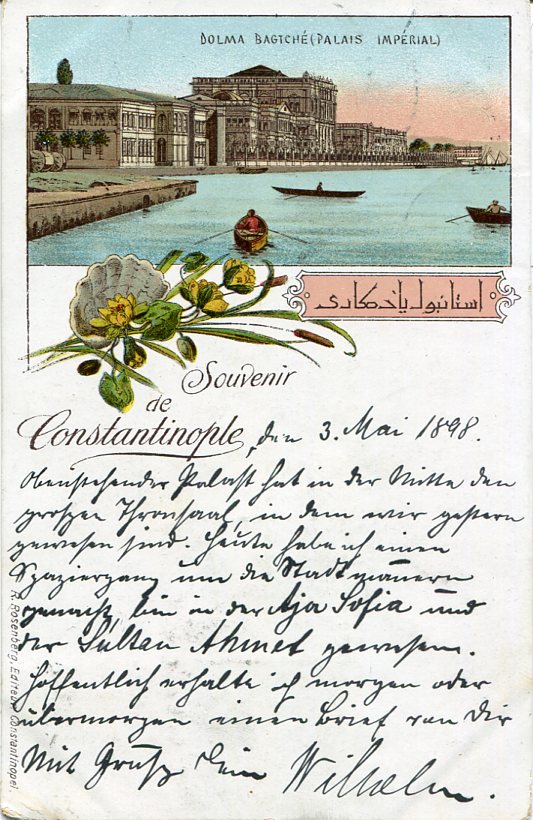 DOLMA BAGTCHÉ (PALAIS IMPÉRIAL)
استانبول يادكارى
Souvenir
de
Constantinople, den 3. Mai 1898.
Obenstehender Palast hat in der Mitte den
groszen Thronsaal, in dem wir gestern
gewesen sind. Heute habe ich einen
Spaziergang um die Stadtmauern
gemacht, bin in der Aja Sofia und
der Sultan Ahmet gewesen.
Hoffentlich erhalte ich morgen oder
übermorgen einen Brief von Dir
Mit Grusz Dein Wilhelm.
R. Rosenberg, Editeur, Constantinopel.